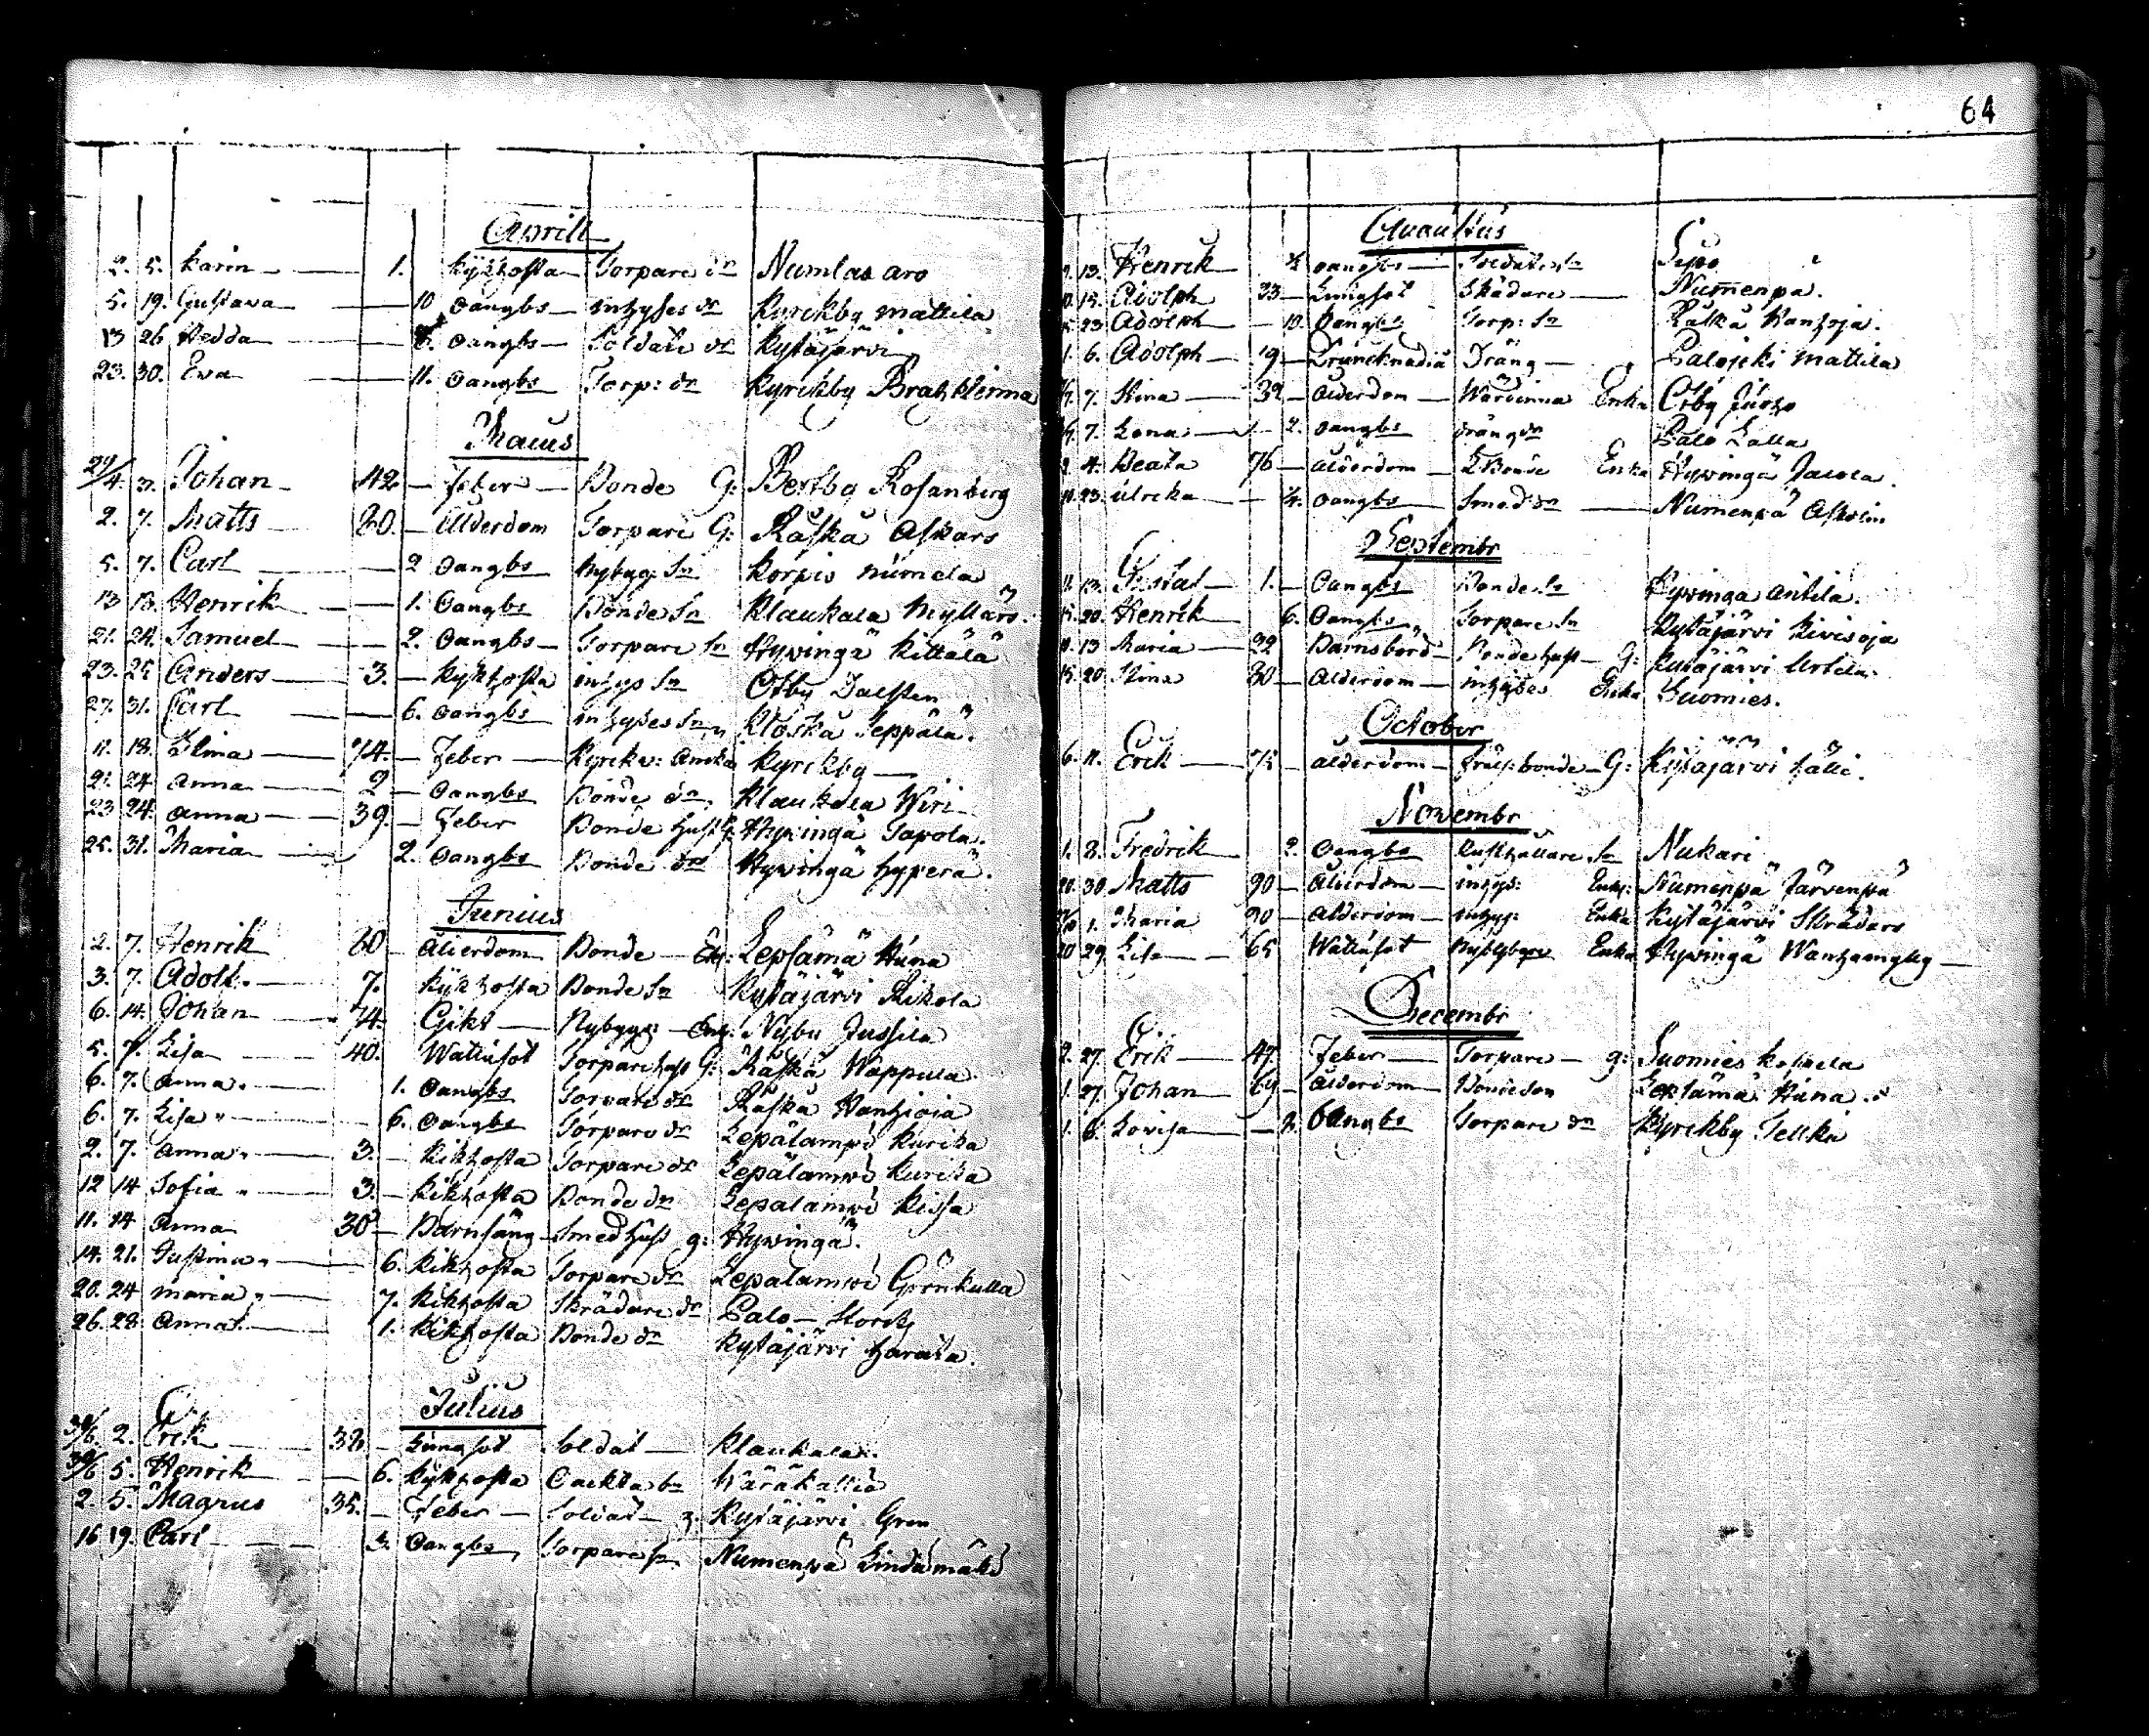 Aprill
2. 5. Karin 1. Kykhosta Torpare dr Numlas aro
5. 19. Gustava 10 oangbs inhyses dr Kyrckby mattila
13 26 Hedda 8. oangbs Soldate dr Kytäjärvi
23. 30. Eva 11. oangbs Torp: dr Kyrckby Brahklinna
Maius
29/4. 3. Johan 42 Feber Bonde G: Rosenberg
2. 7. Matts 20. Ålderdom Torpare G: Råskå Askars
5. 7. Carl 2 oangbs nybyg. Sn Korpis numela
13 13. Henrik 1. Oangbs Bonde Sn Klaukala Myllärs
21. 24. Samuel 2. Oangbs Torpare Sn Hywingä Kittälä
23. 25 Anders 3. Kykhosta inhys Sn Otby Dalsten
27. 31. Carl 6. oangbs inhyses Sn Seppälä.
11. 18. Elina 74. Feber Kyrckby
21. 24 anna 2 oangbs Bonde dr Klaukala Wiri
23 24. anna 39. Feber Bonde hust. G. Hywingä Tapola.
25. 31. Maria 2. oangbs Bonde dr Hywingä hyperä.
Junius
2. 7. Henrik 60 Ålderdom Bonde Lepsämä Húna
3. 7. Adolf. 7. Kykhosta Bonde Sn Kytäjärvi Rikola
6. 14. Johan 74. Gikt Nybygg: Nyby Jussila
5. 7. Lisa 40. Wattusot Torpare hust G: Råskå Wappula
6. 7. anna 1. oangbs Torpare dr Råskå Hanhioia
6. 7. Lisa 6. oangbs Torpare dr Lepälampi Kurika
2. 7. anna 3. Kikhosta Torpare dr Lepälampi Kurika
12 14 Sofia 3. Kikhosta Bonde dr Lepälampi Kissa
11. 14 anna 30 Barnsäng Smed hust g: Hywingä.
14. 21. Justina 6. Kikhosta Torpare dr Lepälampi Grönkulla
20. 24 maria 7. Kikhosta Skrädare dr Palo
26. 28. anna 1. Kikhosta Bonde dr Kytäjärvi harala.
Julius
30/6. 2. Erik 32 Lungsot Soldat Klaukala.
30/6 5. Henrik 6. Kykhosta Wäräkallio
2. 5. Magnus 35. Feber Soldat g. Kytäjärvi Gren
16 19. Carl 3. Oangbs Torpare Sn Numenpä Lindamäki
64
Augustus
13. Henrik oangbs Soldat Sn
Adolph 33 Lungsot Skädare Numenpa.
23. Adolph 10. oangbs Torp: Sn Råskå Hanhoja.
1. 6. Adolph 19 Druncknadiu Dräng Palojoki mattila
7. Stina 32 Ålderdom Wärdinna Enka Otby
7. Lena 2. oangbs dräng dr Palo Lalla
4. Beata 76 ålderdom Enka Hywingä Jacola.
23. Ulrika oangbs Smed dr Numenpä Askolin
Septembr
13. Gustaf 1. Oangbs Bonde Sn Hywinga antila.
20. Henrik 6. Oangbs Torpare Sn Kytäjärvi Kivisoja
13 Maria 32 Barnsbörd Bonde hust G: Kytäjärvi Urlela
20. Stina 30 Ålderdom inhyses Enka Suomies.
October
6. 11. Erik ålderdom frels: bonde G: Kytäjärvi hälli.
Novembr
1. 8. Fredrik 2. oangbs Rusthållare Sn Nukari
30 Matts 90 Ålderdom inhys: Enkl: Numenpä Järvenpä
1. Maria 90 Ålderdom inhys: Enka Kytäjärvi Skrädars
20 29. Lisa 65 Wattusot Enka Hywingä
Decembr
2. 27. Erik 47. Feber Torpare g: Suomies
1. 27. Johan 69 Ålderdom Bondeson Lepsämä Húna
1. 6. Lovisa 2. Oangbs Torpare dr Kyrckby Sellki